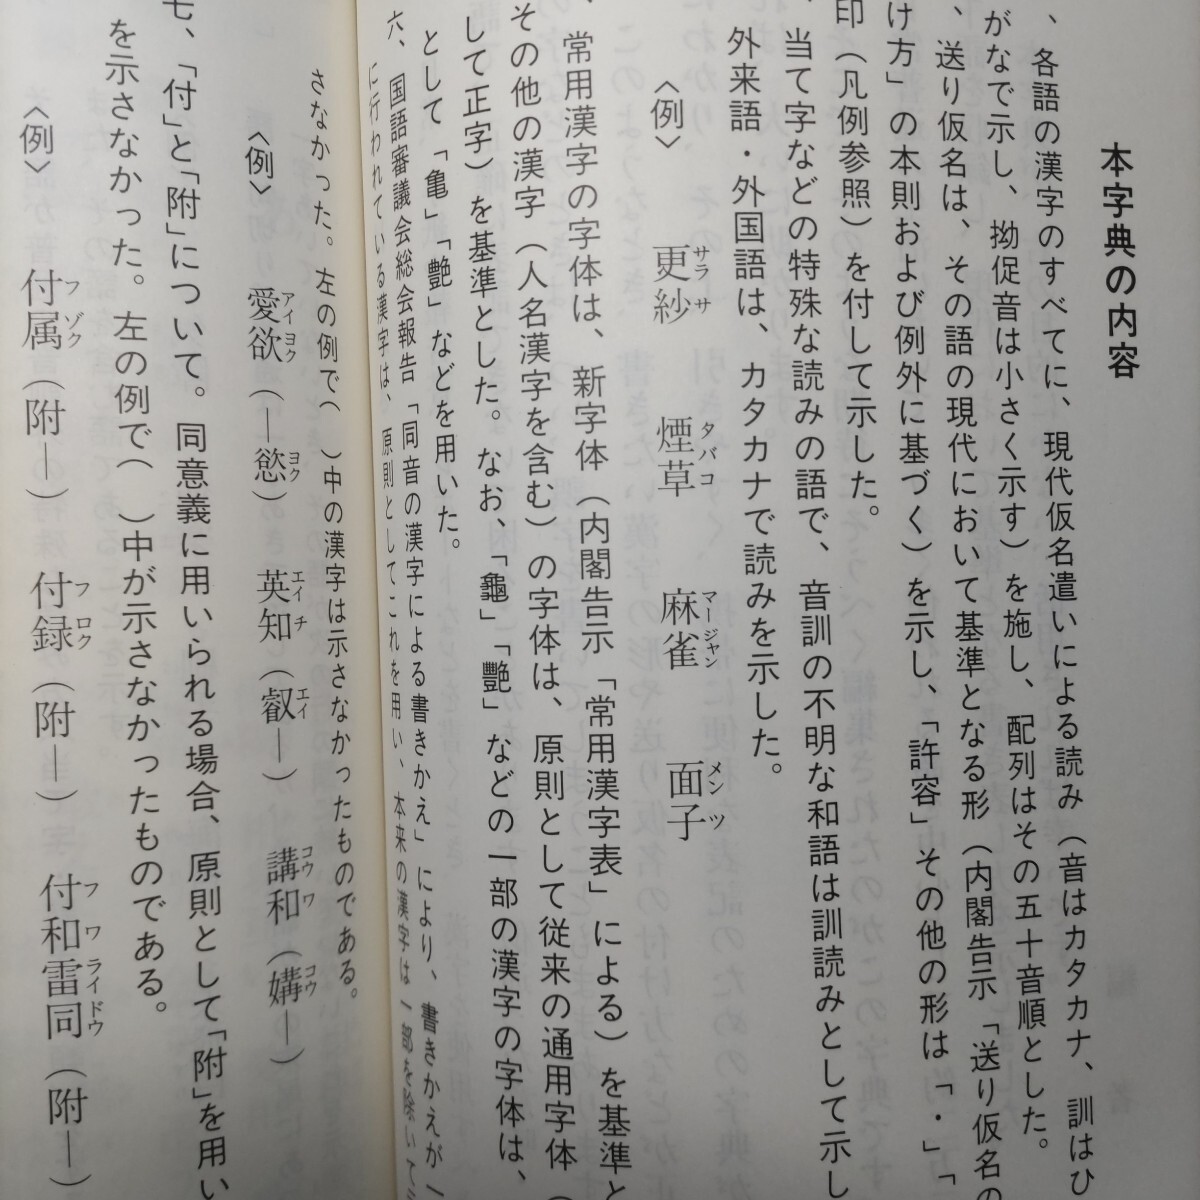 本字典の内容
、各語の漢字のすべてに、現代仮名遣いによる読み（音はカタカナ、訓はひ
がなで示し、拗促音は小さく示す）を施し、配列はその五十音順とした。
、送り仮名は、その語の現代において基準となる形（内閣告示「送り仮名の
け方」の本則および例外に基づく）を示し、「許容」その他の形は「・」「
印（凡例参照）を付して示した。
、当て字などの特殊な読みの語で、音訓の不明な和語は訓読みとして示し
外来語・外国語は、カタカナで読みを示した。
〈例〉 更紗サラサ 煙草タバコ 麻雀マージャン 面子メンツ
、常用漢字の字体は、新字体（内閣告示「常用漢字表」による）を基準と
その他の漢字（人名漢字を含む）の字体は、原則として従来の通用字体（
して正字）を基準とした。なお、「龜」「艷」などの一部の漢字の字体は、
として「亀」「艶」などを用いた。
六、国語審議会総会報告「同音の漢字による書きかえ」により、書きかえが一
に行われている漢字は、原則としてこれを用い、本来の漢字は一部を除いて
さなかった。左の例で（ ）中の漢字は示さなかったものである。
〈例〉 愛欲アイヨク（―慾ヨク） 英知エイチ（叡エイ―） 講和コウワ（媾コウ―）
七、「付」と「附」について。同意義に用いられる場合、原則として「附」を用い
を示さなかった。左の例で（ ）中が示さなかったものである。
〈例〉 付属フゾク（附―） 付録フロク（附―） 付和雷同フワライドウ（附―）